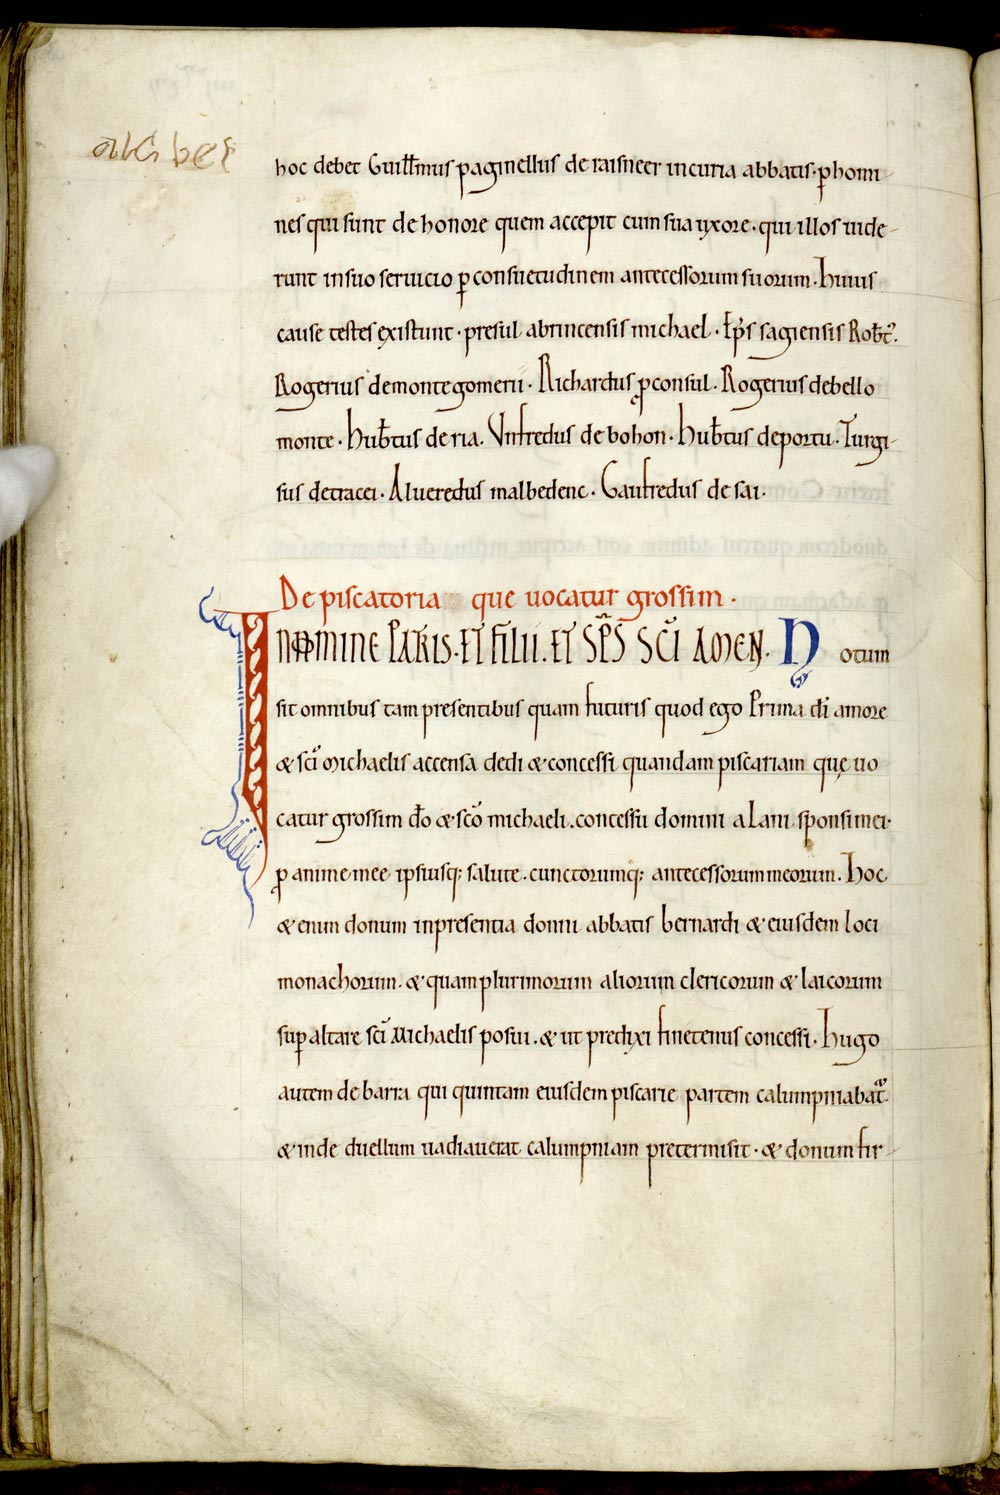 hoc debet Guillmus paginellus de raisneer in curia abbatis. p homi-
nes qui sunt de honore quem accepit cum sua uxore. qui illos uide-
runt in suo seruicio p consuetudinem antecessorum suorum. Huius
cause testes existunt. presul abrincensis michael. Ep̄s sagiensis Robt᷒.
Rogerius de monte gomerii. Richardus pconsul. Rogerius de bello
monte. Hub̄tus de ria. Vnfredus de bohon. Hub̄tus de portu. Turgi-
sus de tracei. Alueredus malbedenc. Gaufredus de sai.
De piscatoria que uocatur grossim.
IN NOMINE PATRIS. ET FILII. ET SP̄S SC̄I AMEN. Notum
sit omnibus tam presentibus quam futuris quod ego Prima di̅ amore
& sc̄i michaelis accensa dedi & concessi quandam piscariam quę uo
catur grossim do̅ & sc̄o michaeli. concessu domini alani sponsi mei.
p anime mee ipsiusq; salute. cunctorumq; antecessorum meorum. Hoc
& enim donum in presentia domni abbatis bernardi & eiusdem loci
monachorum. & quam plurimorum aliorum clericorum & laicorum
sup altare sc̄i michaelis posui. & ut predixi finetenus concessi. Hugo
autem de barra qui quintam eiusdem piscarie partem calumpniabat᷑.
& inde duellum uadiauerat calumpniam pretermisit. & donum fir-